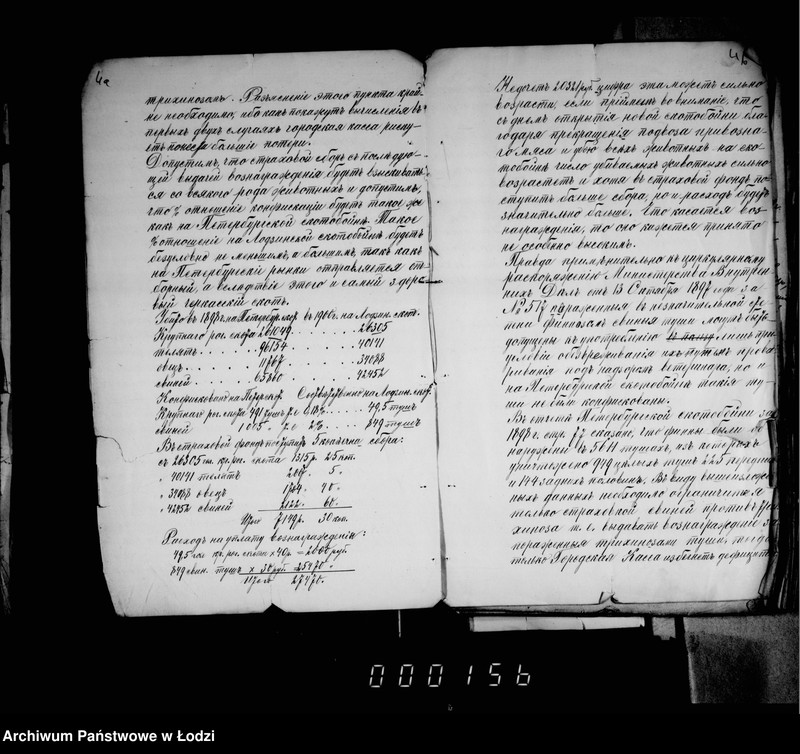 4а
трихинозомъ. Разъясненіе этого пункта край-
не необходимо, ибо какъ покажутъ вычисленія въ
первыхъ двухъ случаяхъ городская касса риску-
етъ понести большіе потери.
Допустимъ, что страховой сборъ съ послѣдую-
щей выдачей вознагражденія будетъ взыскивать-
ся со всякого рода животныхъ и допустимъ,
что % отношеніе конфискаціи будетъ такое же
какъ на Петербургской скотобойнѣ. Такое
% отношеніе на Лодзинской скотобойнѣ будетъ
безусловно не меньшимъ, а большимъ, такъ какъ
на Петербургскіе рынки отправляется от-
борный, а вслѣдствіе этого и самый здоро-
вый черкасскій скотъ.
Убито въ 1898 г. на Петербургск. въ 1900 г. на Лодзин. скот.
Крупнаго рог. скота 261049 . . . . . . . 26305
телятъ . . . . . 96154 . . . . . . . 40141
овецъ . . . . . 11767 . . . . . . . 34088
свиней . . . . . 65860 . . . . . . . 42452
Конфисковано на Петерб. на Лодзин. скот.
Крупнаго рог. скота 491 тушъ . . . . 49,5 тушъ
свиней 1005 " 2% . . . . 849 тушъ
Въ страховой фондъ поступитъ 5 копѣечна сбора:
съ 26305 шт. кр. рог. скота 1315 р. 25 коп.
" 40141 телятъ 2007 5 "
" 34088 овецъ 1704 40 "
" 42452 свиней 2122 60.
Итого 7149 р. 30 коп.
Расходъ на уплату вознагражденія:
49,5 гол. кр. рог. скота × 40 р. = 2000 руб.
849 свин. тушъ × 30 руб. = 25470 "
Итого 27470.
4б
Недочетъ 20321 руб. цифра эта можетъ сильно
возрасти, если приймемъ во вниманіе, что
съ днемъ открытія новой скотобойни бла-
годаря прекращенія подвоза привозна-
го мяса и убою всѣхъ животныхъ на ско-
тобойнѣ число убиваемыхъ животныхъ сильно
возрастетъ и хотя въ страховой фондъ по-
ступитъ больше сбора, но и расходъ будетъ
значительно больше. Что касается воз-
награжденія, то оно кажется принято
не особенно высокимъ.
Правда примѣнительно къ циркулярному
распоряженію Министерства Внутрен-
нихъ Дѣлъ отъ 13 Сентября 1897 года за
№ 517 пораженныя въ незначительной сте-
пени финнозомъ свиныя туши могутъ быть
допущены къ употребленію лишь при
условіи обезвреживанія ихъ путемъ прова-
риванія подъ надзоромъ ветеринара, но и
на Петербургской скотобойнѣ такія ту-
ши не были конфискованы.
Въ отчетѣ Петербургской скотобойни за
1898 г. стр. 77 сказано, что финны были об-
наружены въ 5611 тушахъ, изъ которыхъ
уничтожено 949 цѣлыхъ тушъ 225 переднихъ
и 144 заднихъ половинъ. Въ виду вышеизложен-
ныхъ данныхъ необходимо ограничиться
только страховкой свиней противъ три-
хиноза т. е. выдавать вознагражденіе за
пораженныя трихинозомъ туши, тогда
только Городская Касса избѣгнетъ дефицита
000156
Archiwum Państwowe w Łodzi